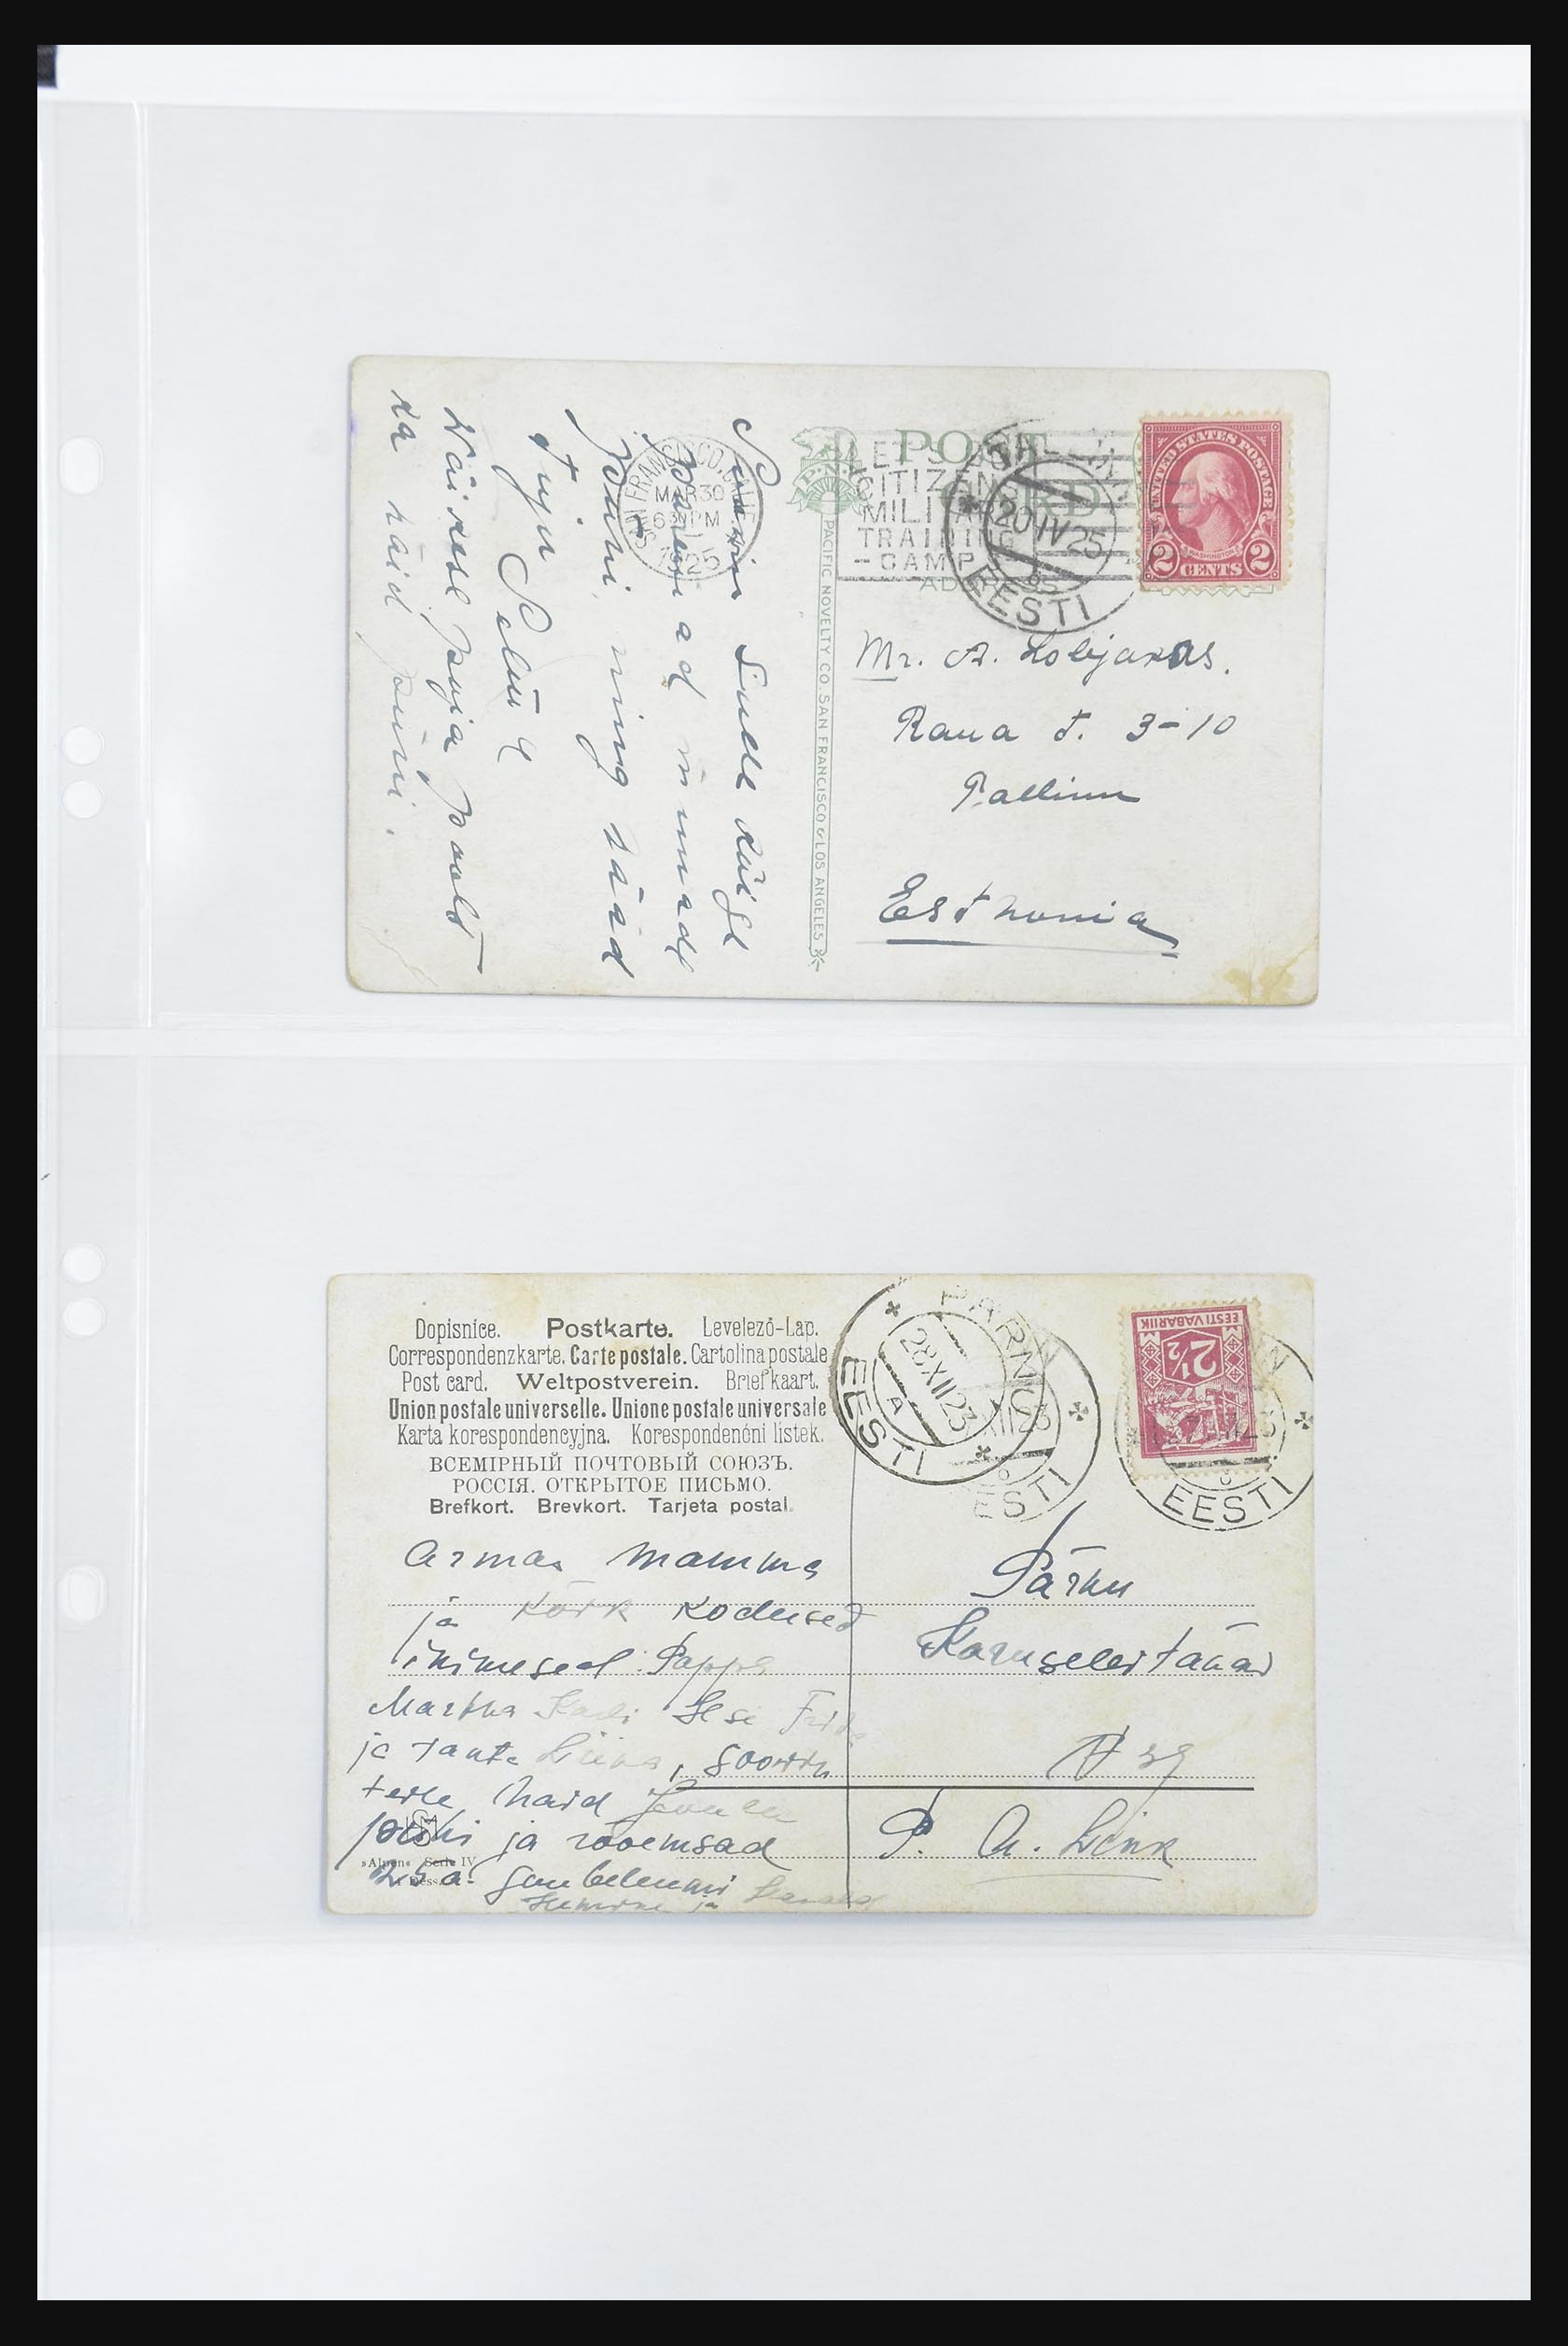 POST CARD
SAN FRANCISCO, CALIF.
MAR 30
6 PM
1925
LET'S GO
CITIZENS
MILITARY
TRAINING
-CAMP
TALLINN
20 IV 25
EESTI
UNITED STATES POSTAGE
WASHINGTON
2 CENTS 2
ADDRESS
PACIFIC NOVELTY CO. SAN FRANCISCO & LOS ANGELES
Mr. A. Lobjakas.
Raua t. 3-10
Tallinn
Esthonia
Sinule kõige
paremad
ning häid
Tuju
Väikese poja poolt
ka häid
Dopisnice. Postkarte. Levelező-Lap.
Correspondenzkarte. Carte postale. Cartolina postale
Post card. Weltpostverein. Briefkaart.
Union postale universelle. Unione postale universale
Karta korespondencyjna. Korespondenční lístek.
ВСЕМІРНЫЙ ПОЧТОВЫЙ СОЮЗЪ.
РОССІЯ. ОТКРЫТОЕ ПИСЬМО.
Brefkort. Brevkort. Tarjeta postal.
PÄRNU
28 XII 23
A
EESTI
XII 23
EESTI
EESTI VABARIIK
2½
EESTI
Armas mamma
ja kõik kodused
inimesed Pappa
Martha Karli Frida
ja tante Liina, soovin
teile häid
ja rõõmsad
»Alpen« Serie IV
Pärnu
P. A. Link